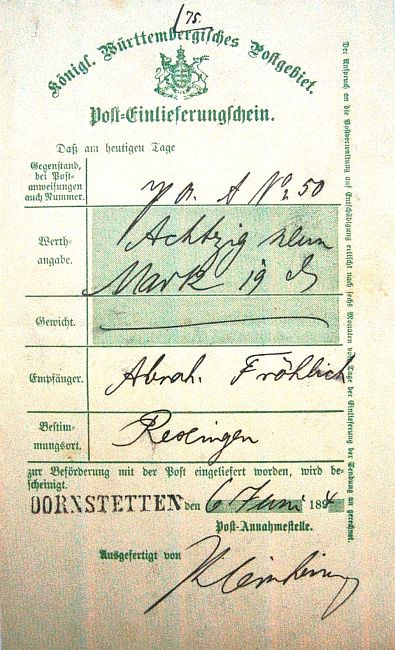 75.
Königl. Württembergisches Postgebiet.
Post-Einlieferungschein.
Daß am heutigen Tage
Gegenstand,
bei Post-
anweisungen
auch Nummer.
A No. 50
Werth-
angabe.
Achtzig neun
Mark 19 ₰
Gewicht.
Empfänger.
Abrah. Fröhlich
Bestim-
mungsort.
Rexingen
zur Beförderung mit der Post eingeliefert worden, wird be-
scheinigt.
DORNSTETTEN den 6 Juni 189
Post-Annahmestelle.
Ausgefertigt von
Der Anspruch an die Postverwaltung auf Entschädigung erlischt nach sechs Monaten vom Tage der Einlieferung der Sendung an gerechnet.